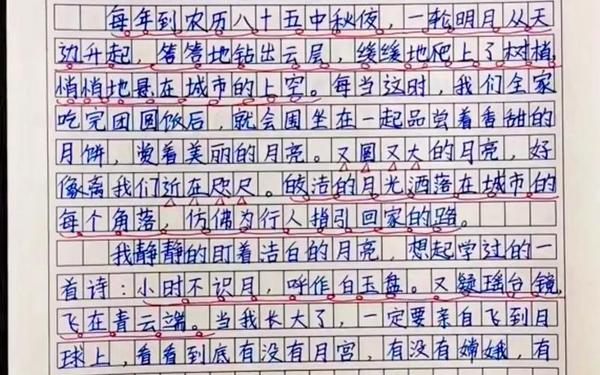 每年到农历八十五中秋夜，一轮明月从天
边升起，笞笞地钻出云层，缓缓地爬上了树植
悄悄地悬在城市的上空。每当这时，我们全家
吃完团圆饭后，就会围坐在一起品尝着香甜的
月饼，赏着美丽的月亮。又圆又大的月亮，好
像离我们近在咫尺。皎洁的月光洒落在城市的
每个角落，仿佛为行人指引回家的路。
我静静的盯着洁白的月亮，想起学过的一
首诗：小时不识月，呼作白玉盘。又疑瑶台镜，
飞在青云端。当我长大了，一定要亲自飞到月
球上，看看到底有没有月宫，有没有嫦娥，有